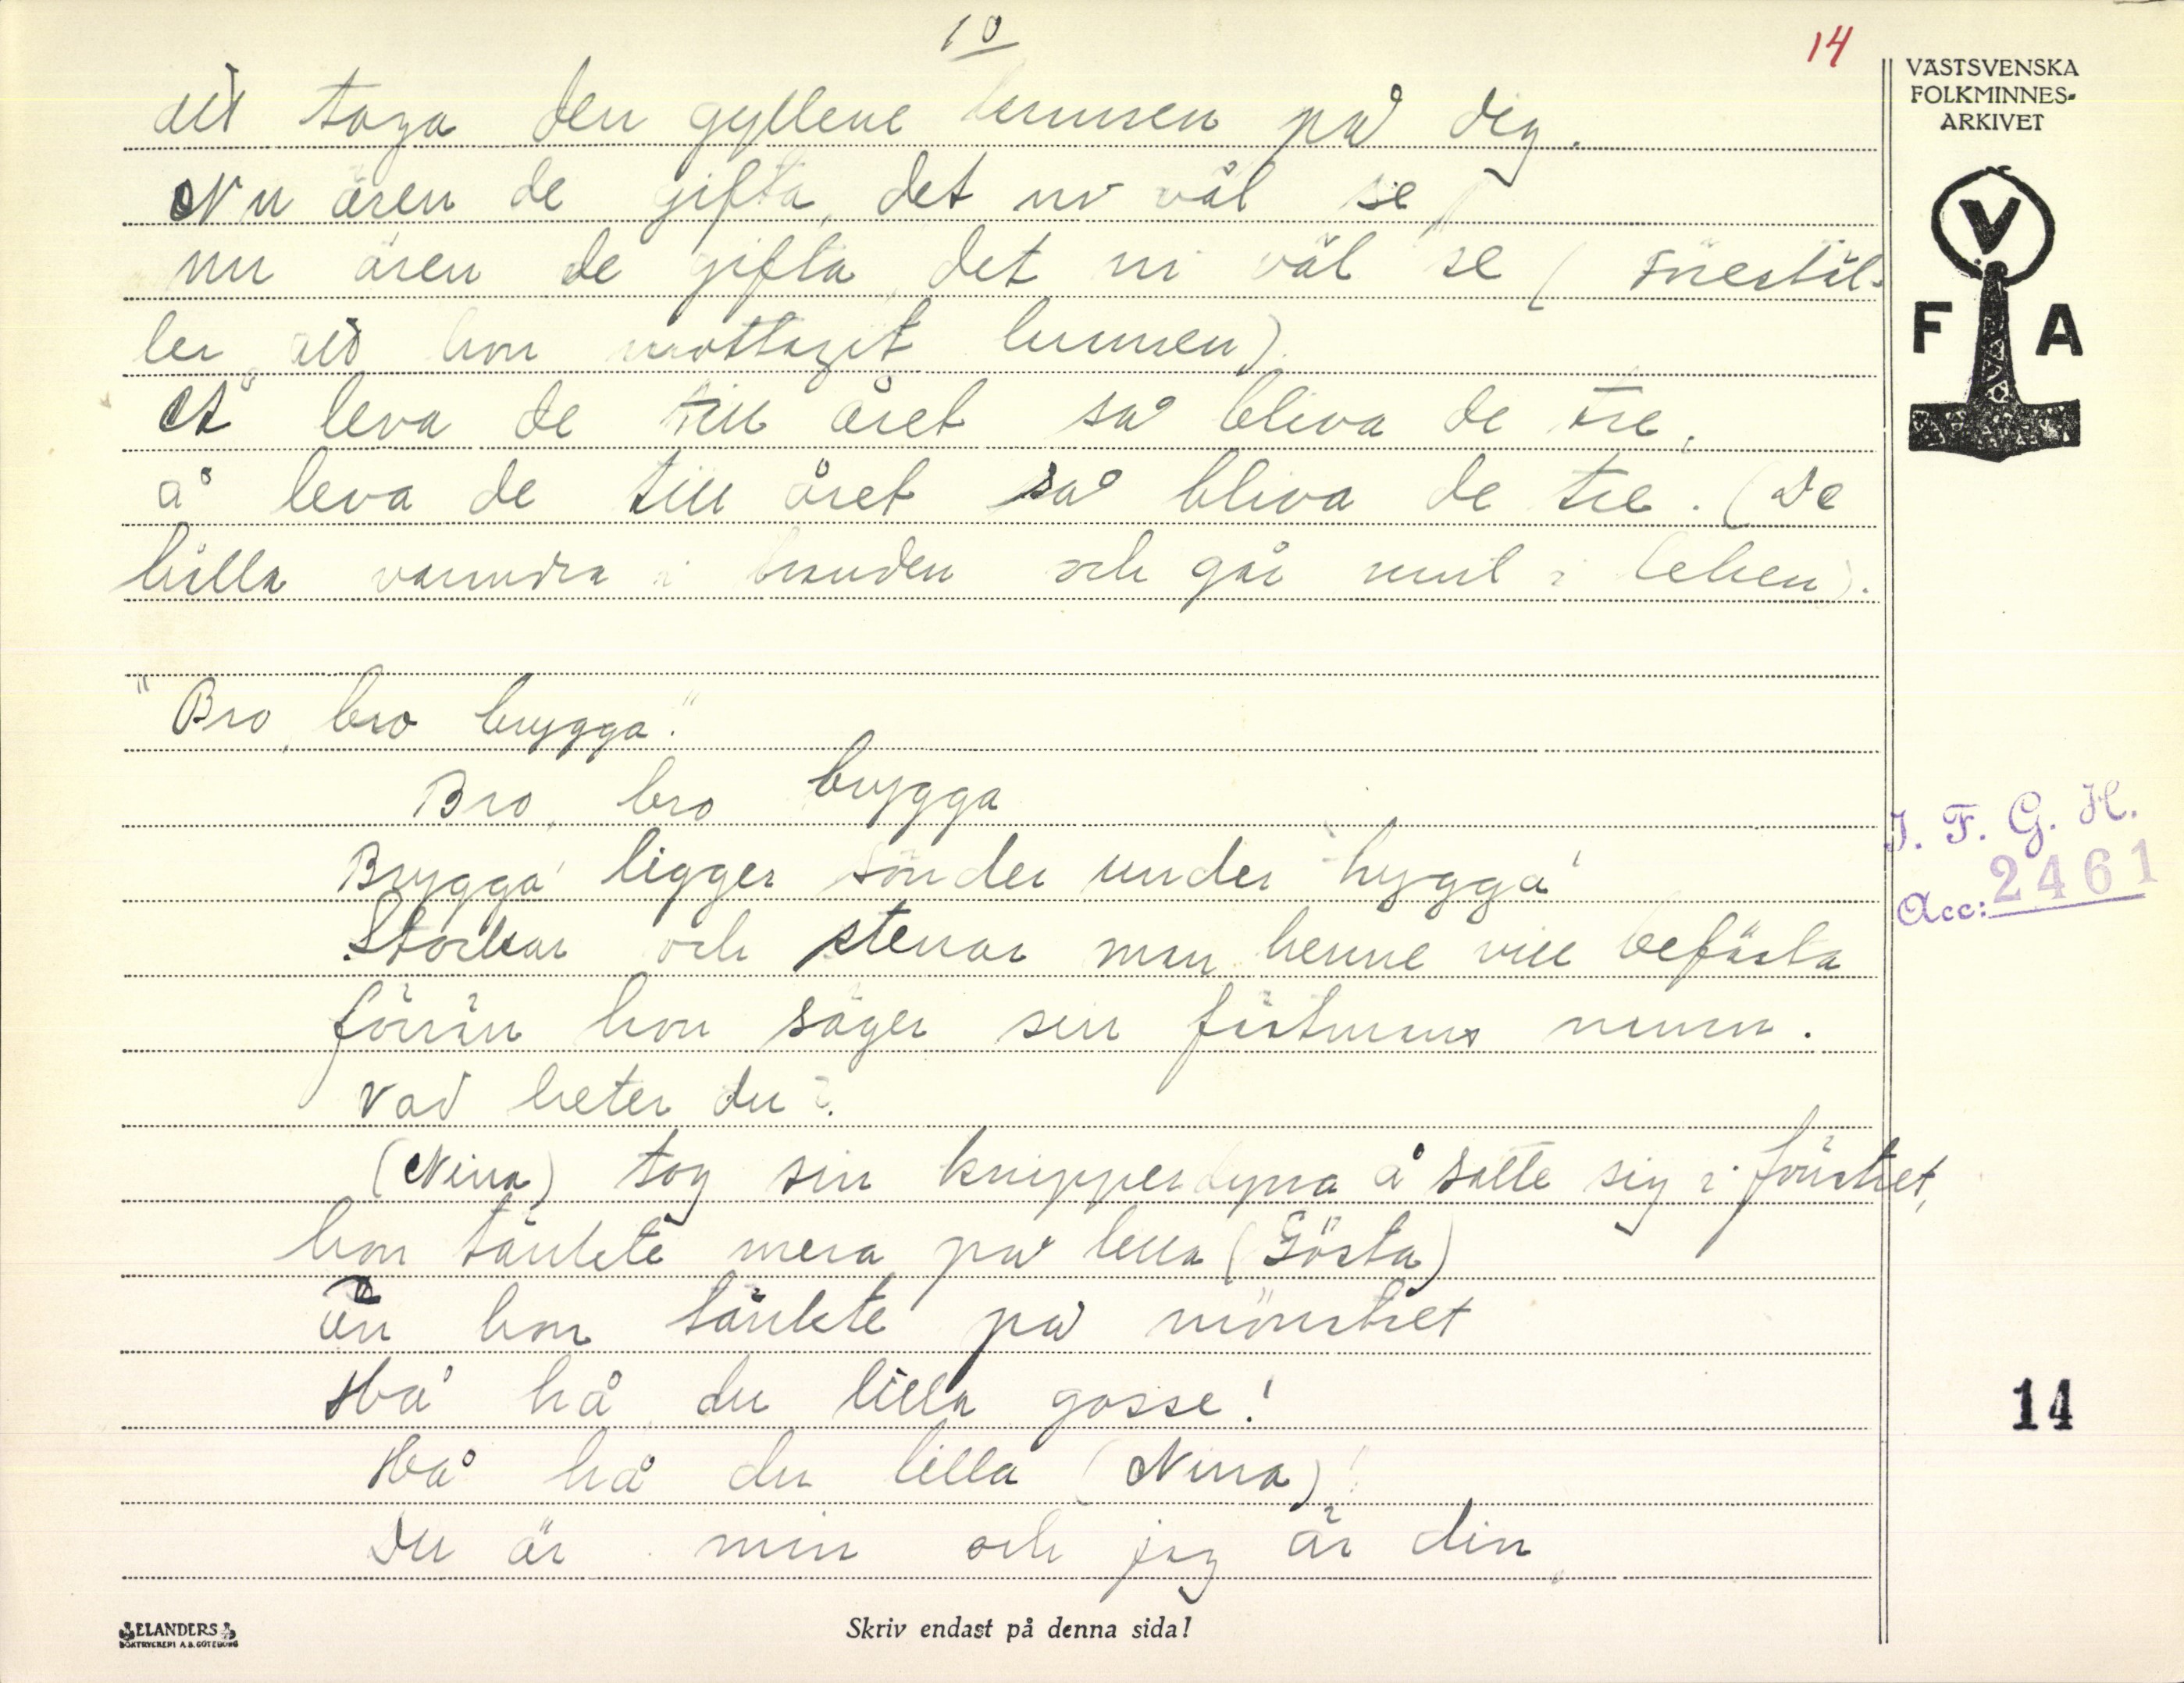 10
14
VÄSTSVENSKA
FOLKMINNES-
ARKIVET
V
F A
att taga den gyllene kronen på dig.
Nu ären de gifta, det ni väl se,
nu ären de gifta, det ni väl se (förestäl-
ler att hon mottagit kronen).
Å leva de till året så bliva de tre,
å leva de till året så bliva de tre. (De
hålla varandra i handen och går runt i leken).
"Bro, bro brygga."
Bro, bro brygga
Brygga' ligger sönder under hygga'
Stockar och stenar man henne vill befästa
förrän hon säger sin fästmans namn.
Vad heter du?
(Nina) tog sin knipperdyna å satte sig i fönstret,
hon tänkte mera på lilla (Gösta)
än hon tänkte på mönstret
Hå hå du lilla gosse!
Hå hå du lilla (Nina)!
Du är min och jag är din
I. F. G. H.
Acc: 2461
14
ELANDERS
BOKTRYCKERI A.B. GÖTEBORG
Skriv endast på denna sida!